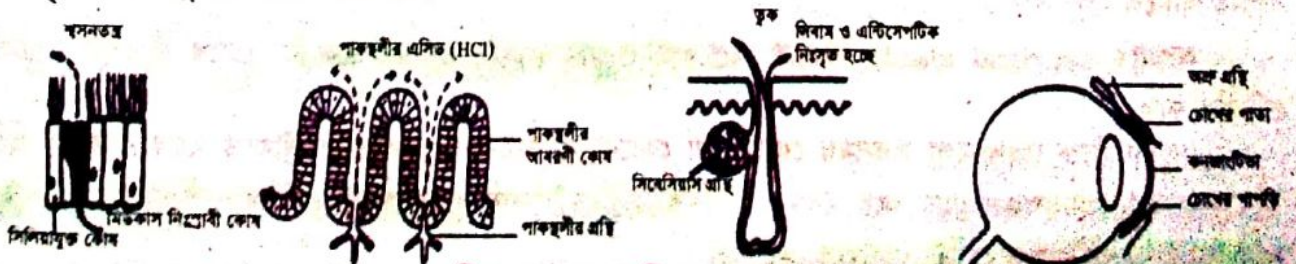 শ্বসনতন্ত্র
সিলিয়াযুক্ত কোষ
মিউকাস নিঃস্রাবী কোষ
পাকস্থলীর এসিড (HCl)
পাকস্থলীর
আবরণী কোষ
পাকস্থলীর গ্রন্থি
ত্বক
সিবাম ও এন্টিসেপটিক
নিঃসৃত হচ্ছে
সিবেসিয়াস গ্রন্থি
অশ্রু গ্রন্থি
চোখের পাতা
কনজাংটিভা
চোখের পাপড়ি